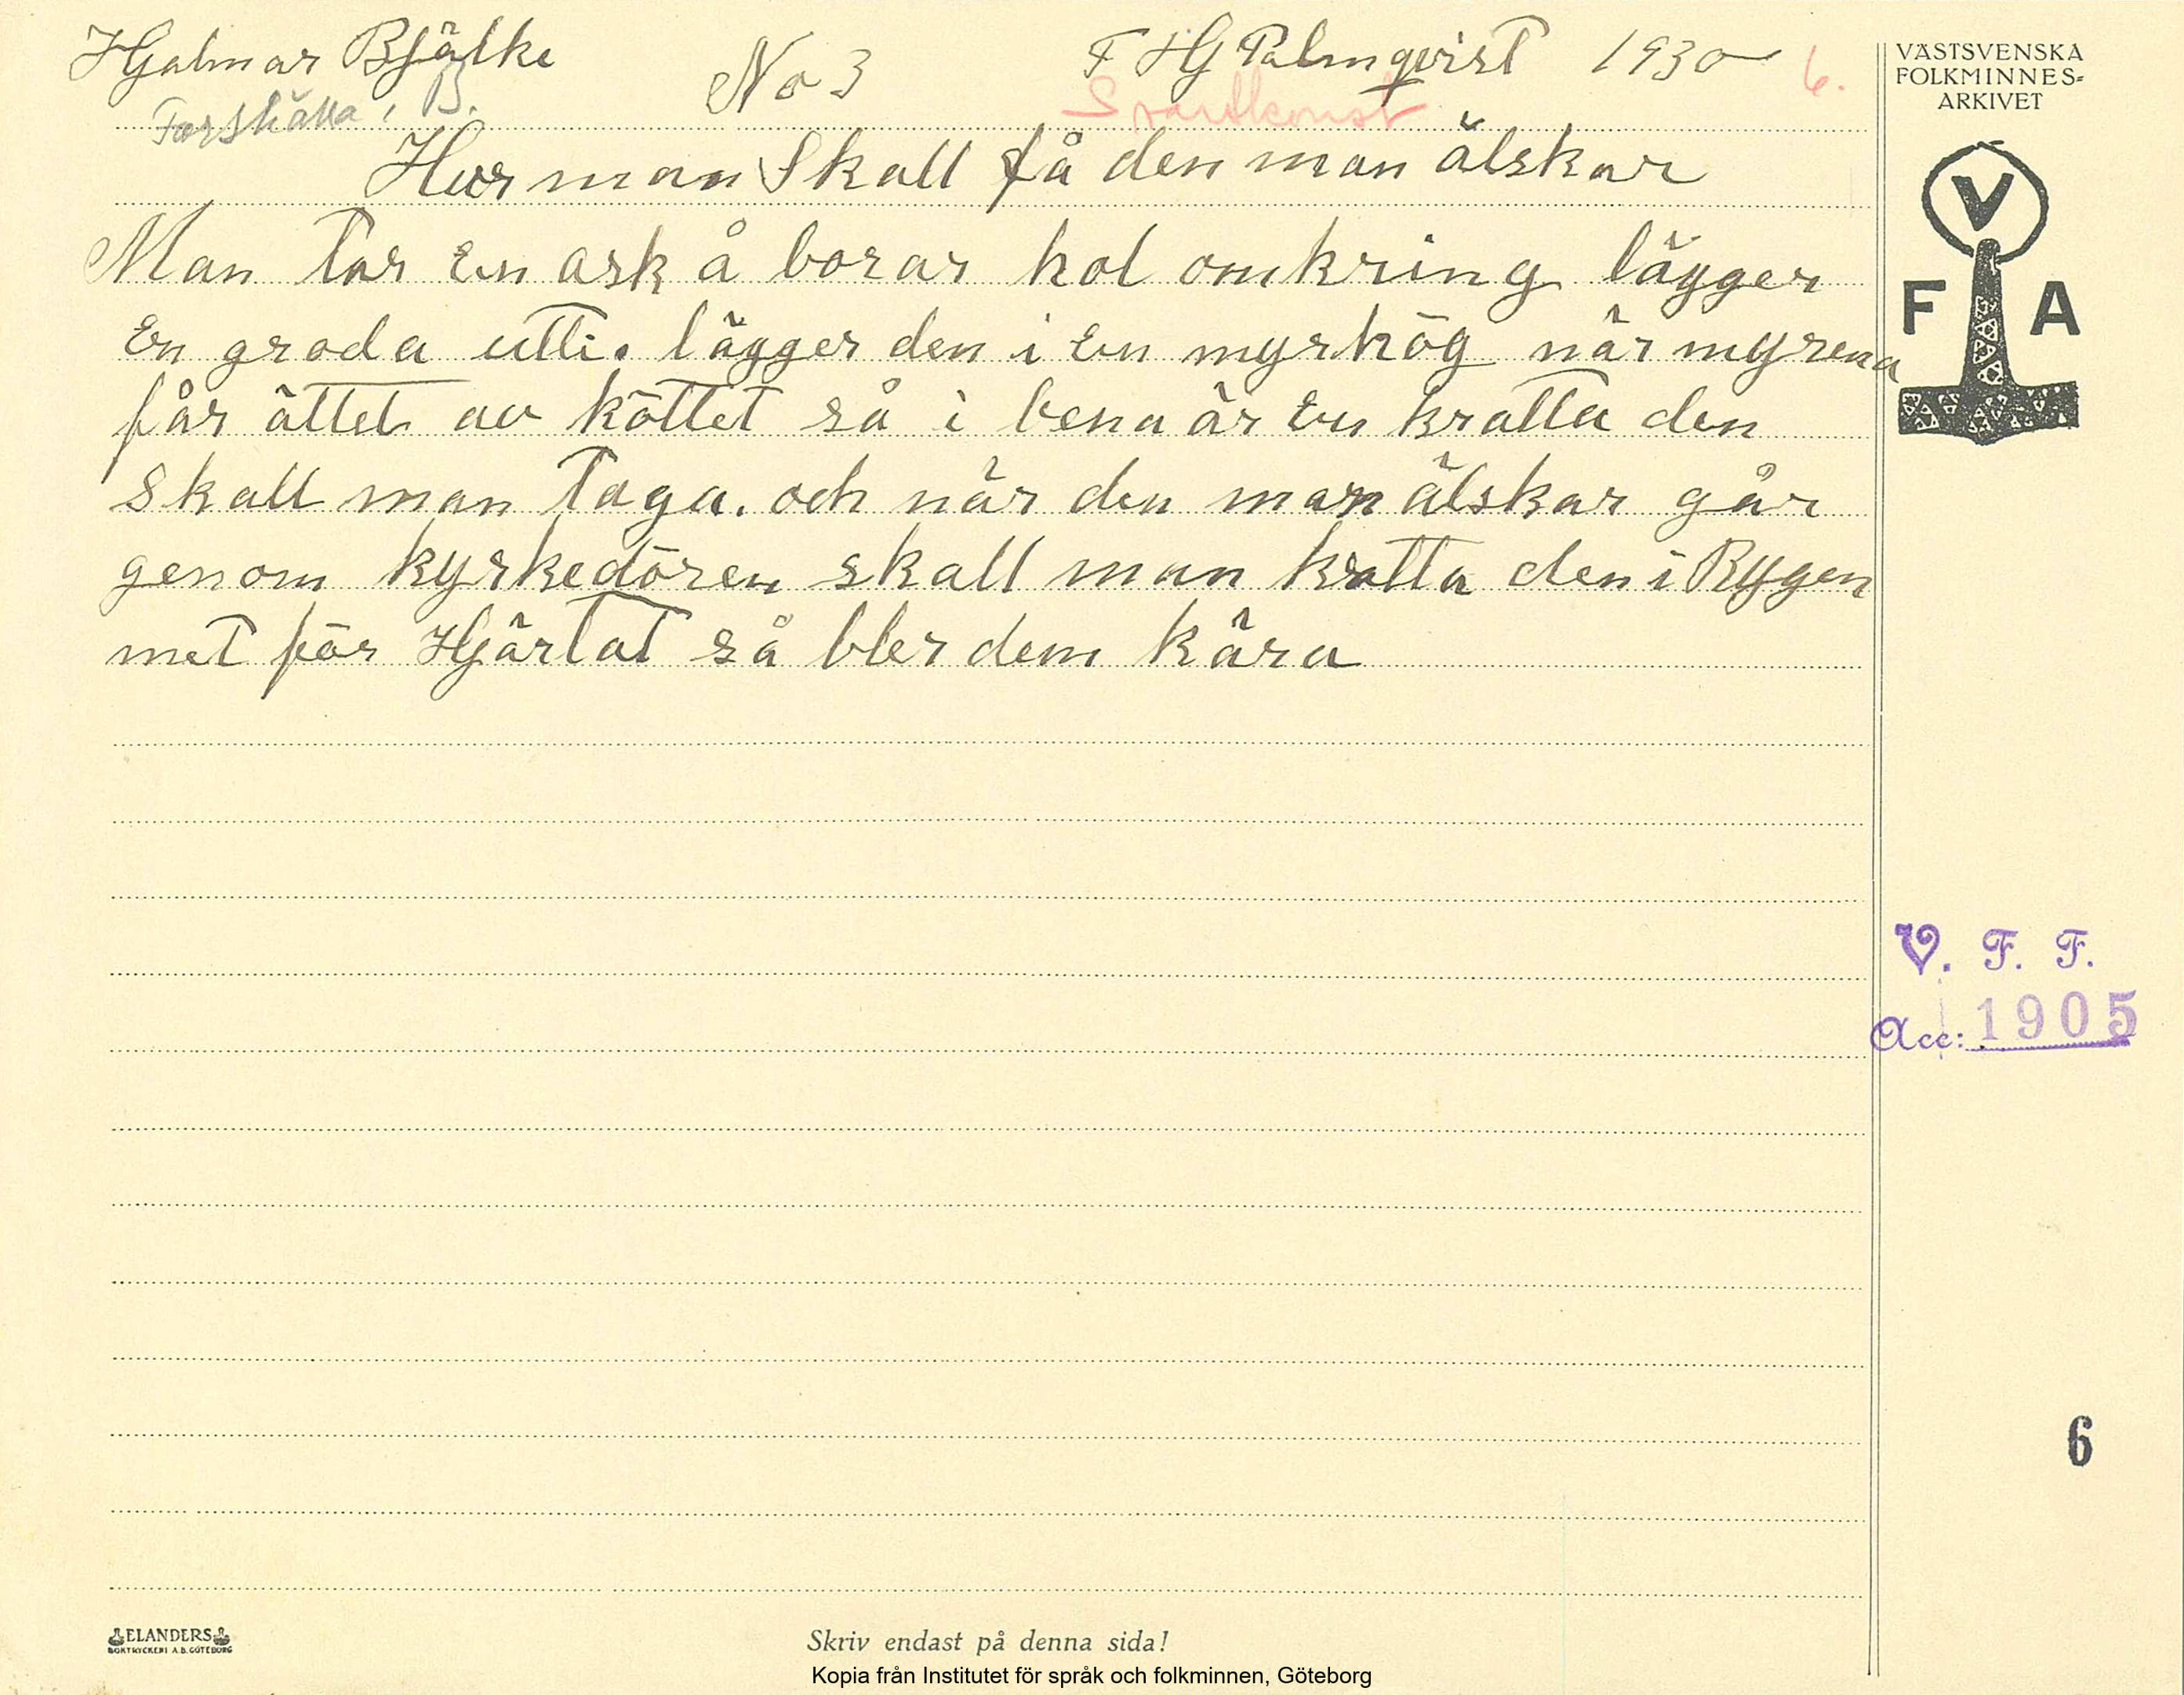 Hjalmar Bjälke No 3 F HG Palmqvist 1930 6.
Forshälla i B.
Svartkonst
Hur man Skall få den man älskar
Man Tar En ask å borar hol omkring lägger
En groda utti. lägger den i En myrhög när myrena
får ättet av köttet så i bena är En kratta den
Skall man Taga. och när den man älskar går
genom kyrkedören skall man kratta den i Rygen
met för Hjärtat så bler dem kära
VÄSTSVENSKA
FOLKMINNES-
ARKIVET
V
F A
V. F. F.
Acc: 1905
6
ELANDERS
BOKTRYCKERI A.B. GÖTEBORG
Skriv endast på denna sida!
Kopia från Institutet för språk och folkminnen, Göteborg